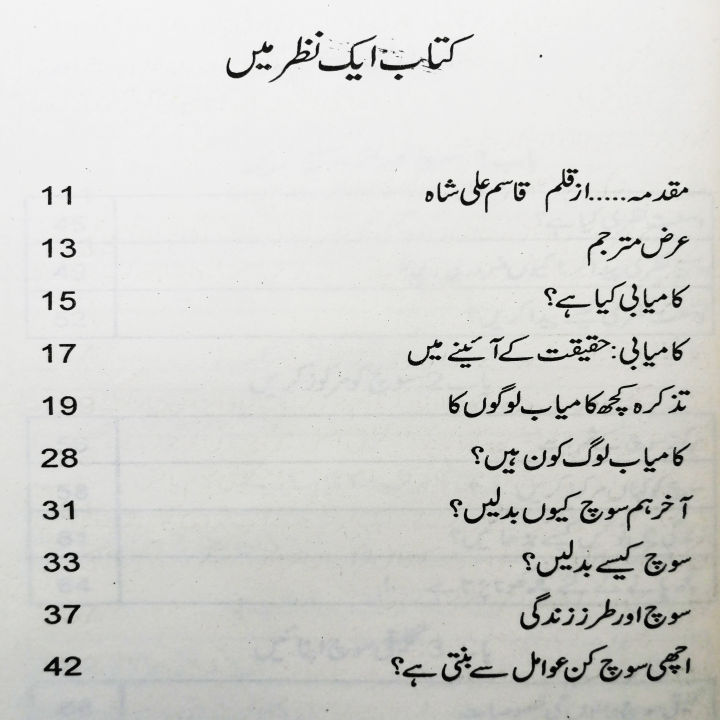 کتاب ایک نظر میں
مقدمہ.....از قلم قاسم علی شاہ 11
عرض مترجم 13
کامیابی کیا ہے؟ 15
کامیابی: حقیقت کے آئینے میں 17
تذکرہ کچھ کامیاب لوگوں کا 19
کامیاب لوگ کون ہیں؟ 28
آخر ہم سوچ کیوں بدلیں؟ 31
سوچ کیسے بدلیں؟ 33
سوچ اور طرز زندگی 37
اچھی سوچ کن عوامل سے بنتی ہے؟ 42